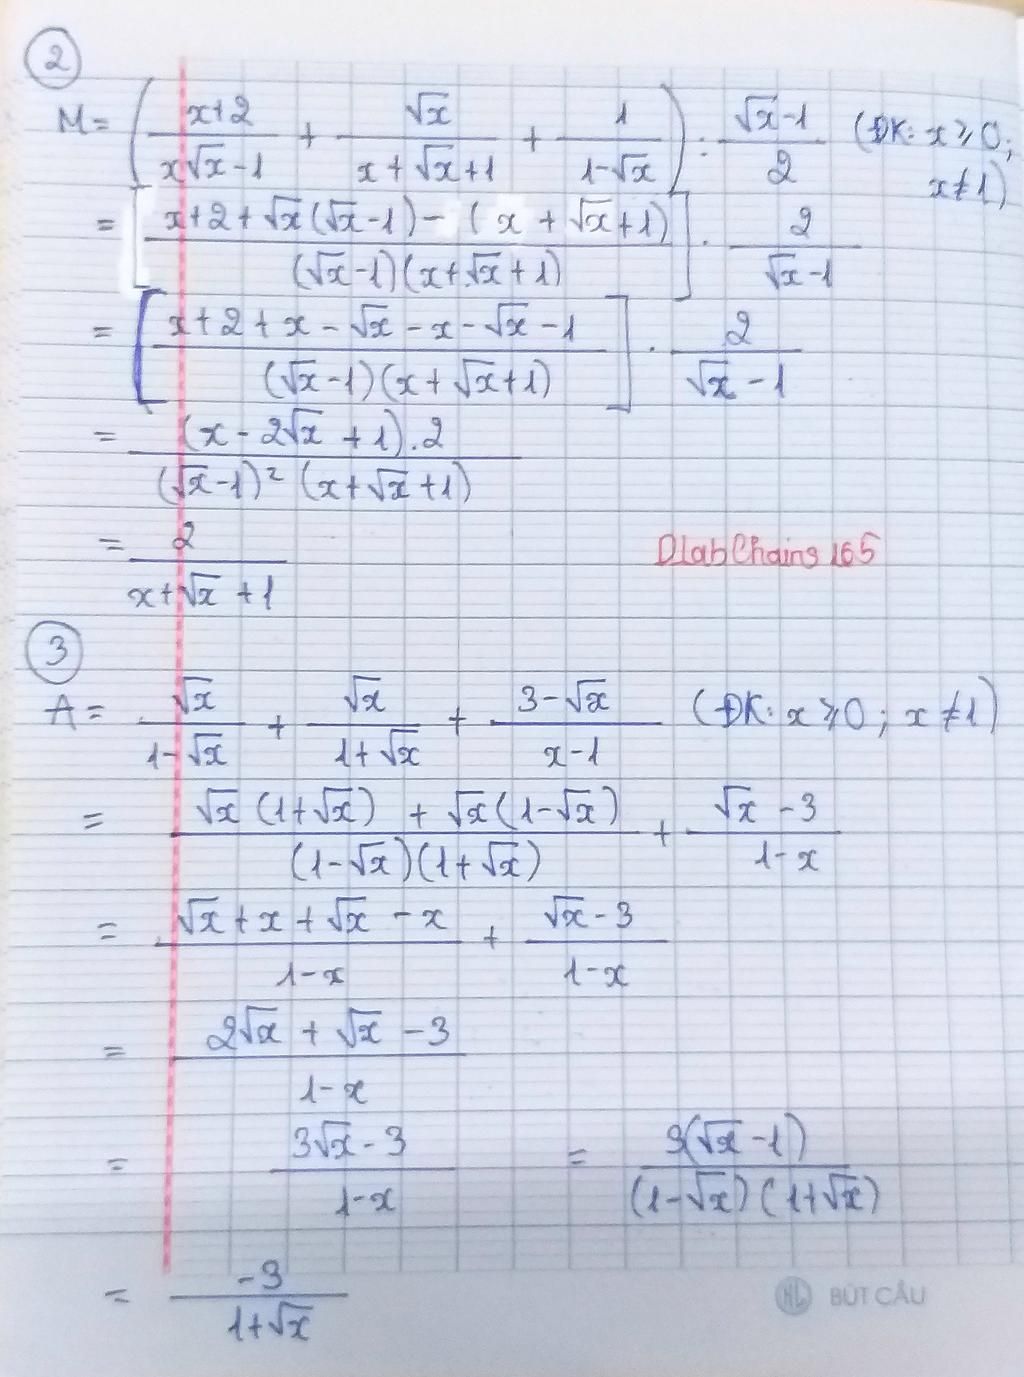 2
M = ( (x+2)/(x√x-1) + √x/(x+√x+1) + 1/(1-√x) ) : (√x-1)/2 (ĐK: x ⩾ 0; x≠1)
= [ (x+2+√x(√x-1) - (x+√x+1))/((√x-1)(x+√x+1)) ] . 2/(√x-1)
= [ (x+2+x-√x-x-√x-1)/((√x-1)(x+√x+1)) ] . 2/(√x-1)
= (x-2√x+1).2/((√x-1)² (x+√x+1))
= 2/(x+√x+1)
DlabChains165
3
A = √x/(1-√x) + √x/(1+√x) + (3-√x)/(x-1) (ĐK: x ⩾ 0; x≠1)
= (√x(1+√x) + √x(1-√x))/((1-√x)(1+√x)) + (√x-3)/(1-x)
= (√x+x+√x-x)/(1-x) + (√x-3)/(1-x)
= (2√x+√x-3)/(1-x)
= (3√x-3)/(1-x) = 3(√x-1)/((1-√x)(1+√x))
= -3/(1+√x)
HL BÚT CÂU